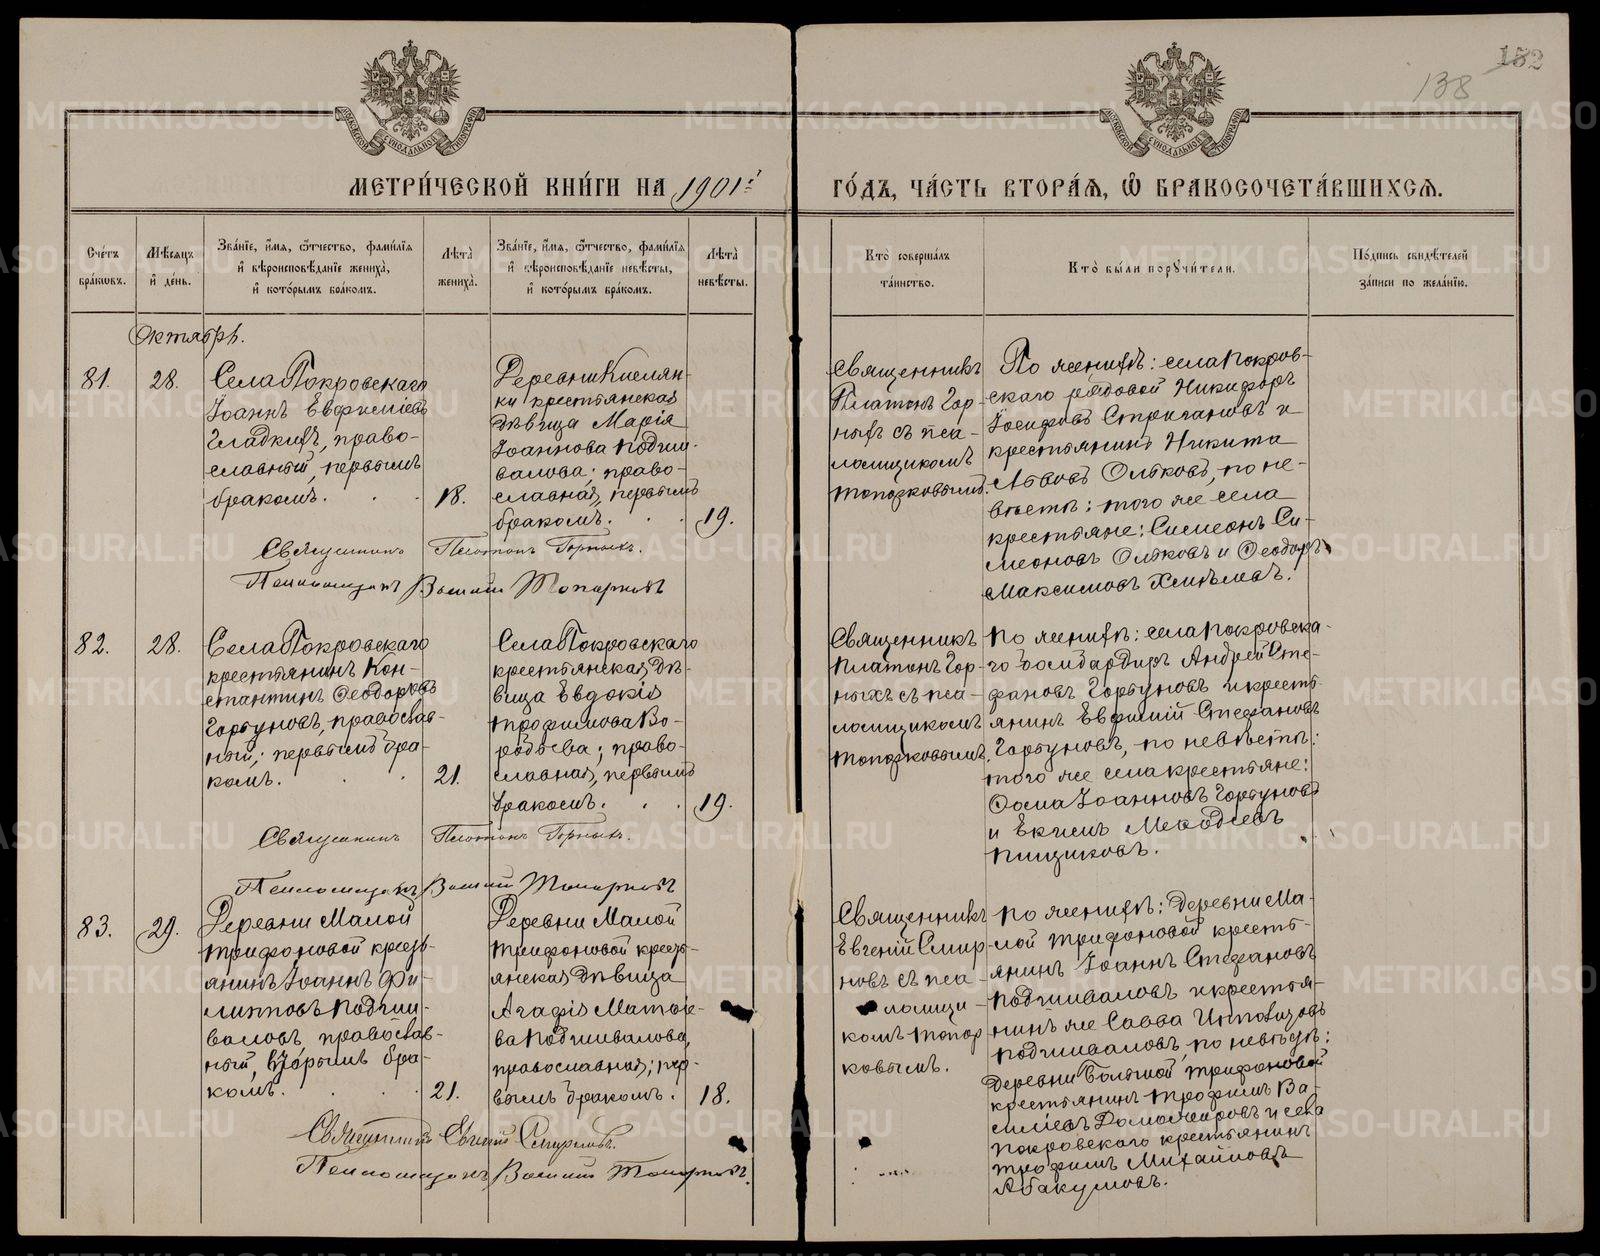 152
138
МЕТРИ́ЧЕСКОЙ КНИ́ГИ НА 1901й
ГО́ДЪ, ЧА́СТЬ ВТОРА́Я, Ѽ БРАКОСОЧЕТА́ВШИХСЯ.
Сче́тъ бра́ковъ.
Мѣ́сяцъ и҆ де́нь.
Зва́нїе, и҆́мя, ѻ҆́тчество, фами́лїя и҆ вѣроисповѣ́данїе жениха̀, и҆ кото́рымъ бра́комъ.
Лѣ́та жениха̀.
Зва́нїе, и҆́мя, ѻ҆́тчество, фами́лїя и҆ вѣроисповѣ́данїе невѣ́сты, и҆ кото́рымъ бра́комъ.
Лѣ́та невѣ́сты.
Кто̀ соверша́лъ та́инство.
Кто̀ бы́ли поручи́тели.
По́дпись свидѣ́телей за́писи по жела́нїю.
Октябрь.
81.
28.
Села Покровскаго
Іоаннъ Евфиміевъ
Гладкихъ, право-
славный, первымъ
бракомъ.
18.
Деревни Кислян-
ки крестьянская
дѣвица Марія
Іоаннова Подши-
валова; право-
славная, первымъ
бракомъ.
19.
Священникъ
Платонъ Гор-
ныхъ съ пса-
ломщикомъ
Топорковымъ.
По женихѣ: села Покров-
скаго рядовой Никифоръ
Іосифовъ Стригановъ и
крестьянинъ Никита
Львовъ Ольковъ, по не-
вѣстѣ: того же села
крестьяне: Симеонъ Си-
меоновъ Ольковъ и Ѳеодоръ
Максимовъ Хмѣлевъ.
Священникъ Платонъ Горныхъ.
Псаломщикъ Василій Топорковъ
82.
28.
Села Покровскаго
крестьянинъ Кон-
стантинъ Ѳеодоровъ
Горбуновъ, православ-
ный; первымъ бра-
комъ.
21.
Села Покровскаго
крестьянская дѣ-
вица Евдокія
Трофимова Во-
робьева; право-
славная, первымъ
бракомъ.
19.
Священникъ
Платонъ Гор-
ныхъ съ пса-
ломщикомъ
Топорковымъ.
По женихѣ: села Покровска-
го бомбардиръ Андрей Сте-
фановъ Горбуновъ и кресть-
янинъ Евфимій Стефановъ
Горбуновъ, по невѣстѣ:
того же села крестьяне:
Ѳома Іоанновъ Горбуновъ
и Екимъ Меѳодіевъ
Пищиковъ.
Священникъ Платонъ Горныхъ.
Псаломщикъ Василій Топорковъ
83.
29.
Деревни Малой
Трифоновой кресть-
янинъ Іоаннъ Фи-
липповъ Подши-
валовъ, православ-
ный, вторымъ бра-
комъ.
21.
Деревни Малой
Трифоновой кресть-
янская дѣвица
Агафія Матѳіе-
ва Подшивалова,
православная; пер-
вымъ бракомъ.
18.
Священникъ
Евгеній Смир-
новъ съ пса-
ломщи-
комъ Топор
ковымъ.
По женихѣ: деревни Ма-
лой Трифоновой кресть-
янинъ Іоаннъ Стефановъ
Подшиваловъ и крестья-
нинъ же Савва Ипполитовъ
Подшиваловъ, по невѣстѣ:
деревни Большой Трифоновой
крестьянинъ Трофимъ Ва-
силіевъ Доможировъ и села
Покровскаго крестьянинъ
Трофимъ Михайловъ
Абакумовъ.
Священникъ Евгеній Смирновъ.
Псаломщикъ Василій Топорковъ.
METRIKI.GASO-URAL.RU